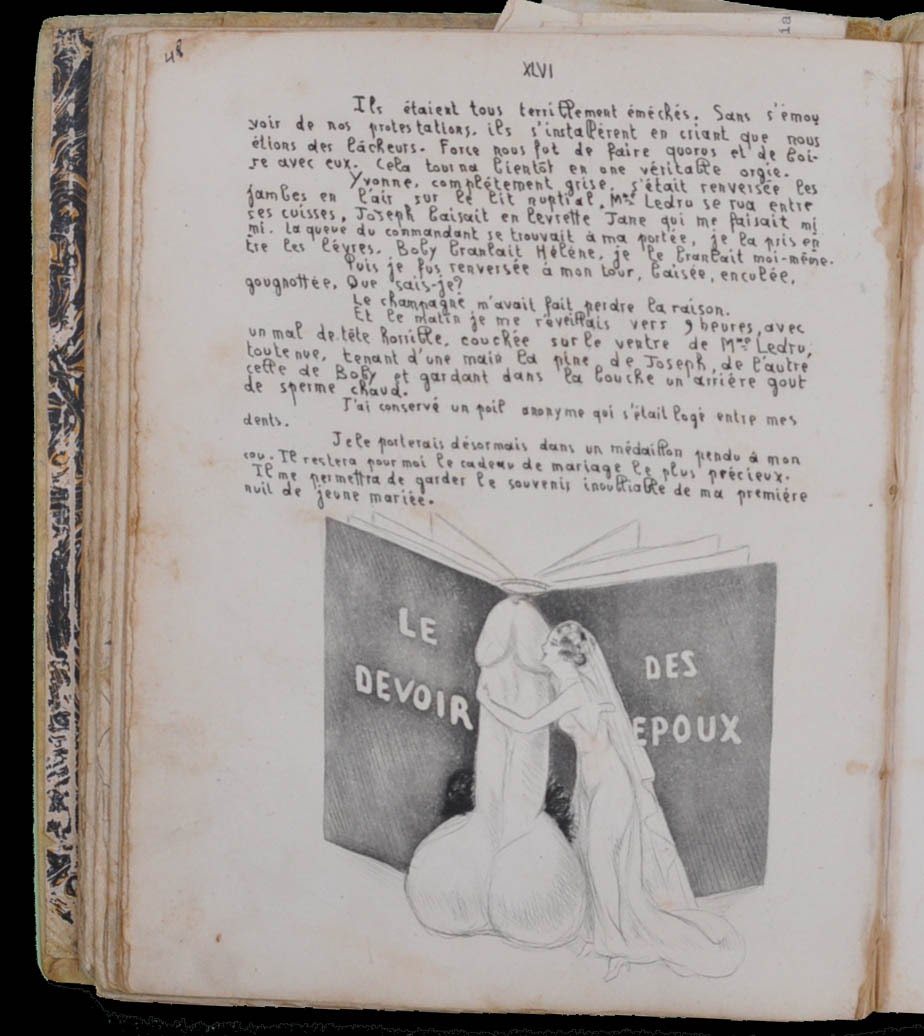 48
XLVI
Ils étaient tous terriblement éméchés. Sans s'émou
voir de nos protestations, ils s'installèrent en criant que nous
étions des lâcheurs. Force nous fut de faire quoros et de boi-
re avec eux. Cela tourna bientôt en une véritable orgie.
Yvonne, complétement grise, s'était renversée les
jambes en l'air sur le lit nuptial, Mme Ledru se rua entre
ses cuisses, Joseph baisait en levrette Jane qui me faisait mi
mi. La queue du commandant se trouvait à ma portée, je la pris en
tre les lèvres. Boby branlait Hélène, je le branlait moi-même.
Puis je fus renversée à mon tour, baisée, enculée,
gougnottée, Que sais-je?
Le champagne m'avait fait perdre la raison.
Et le matin je me réveillais vers 9 heures, avec
un mal de tête horrible, couchée sur le ventre de Mme Ledru,
toute nue, tenant d'une main la pine de Joseph, de l'autre
celle de Boby et gardant dans la bouche un arrière gout
de sperme chaud.
J'ai conservé un poil anonyme qui s'était logé entre mes
dents.
Je le porterais désormais dans un médaillon pendu à mon
cou. Il restera pour moi le cadeau de mariage le plus précieux.
Il me permettra de garder le souvenir inoubliable de ma première
nuit de jeune mariée.
LE
DEVOIR
DES
EPOUX